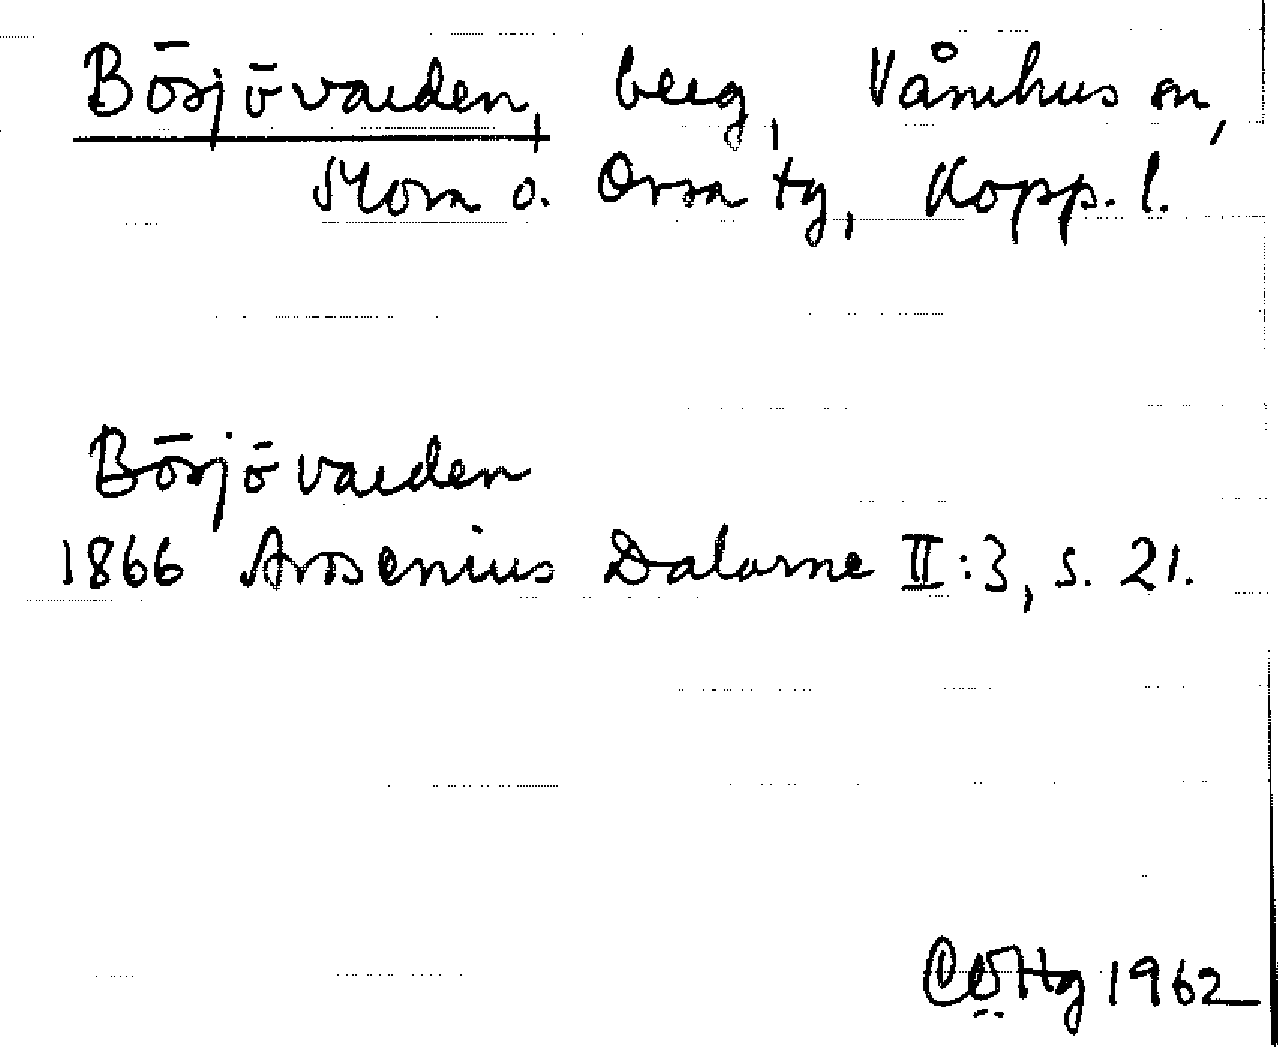 Bösjövarden, berg, Våmhus sn,
Mora o. Orsa tg, Kopp. l.
Bösjövarden
1866 Arosenius Dalarne II:3, s. 21.
1962